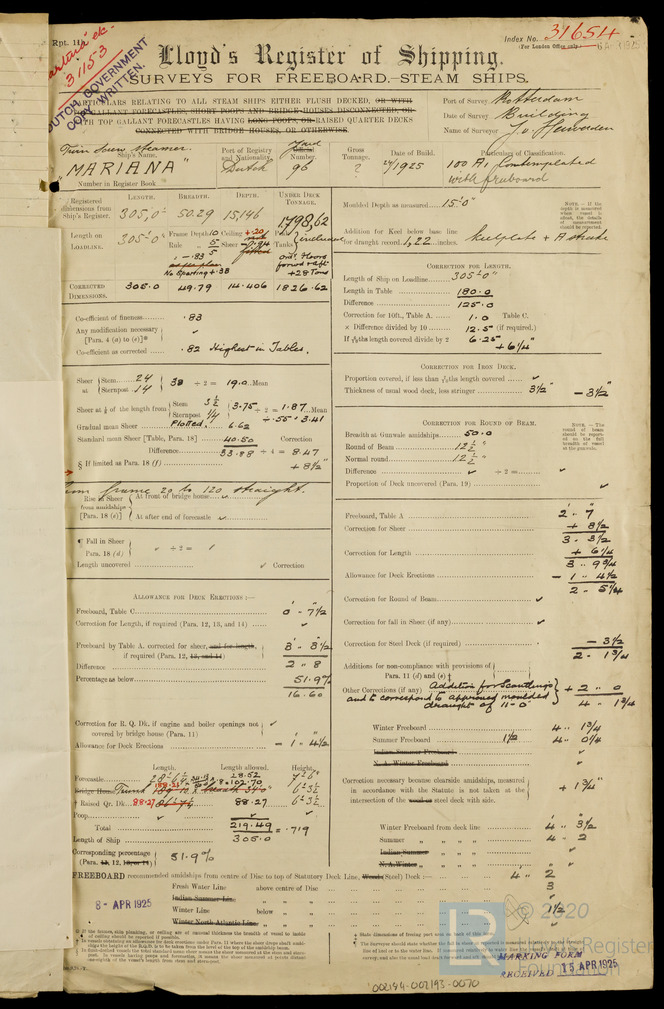 Rpt. 11
31153
DUTCH GOVERNMENT
COPY WRITTEN.
Index No. 31654
(For London Office only)
Lloyd's Register of Shipping.
SURVEYS FOR FREEBOARD.—STEAM SHIPS.
PARTICULARS RELATING TO ALL STEAM SHIPS EITHER FLUSH DECKED, OR WITH
TOP GALLANT FORECASTLES, SHORT POOPS AND BRIDGE HOUSES DISCONNECTED, OR
WITH TOP GALLANT FORECASTLES HAVING LONG POOPS, OR RAISED QUARTER DECKS
CONNECTED WITH BRIDGE HOUSES, OR OTHERWISE.
Port of Survey Rotterdam
Date of Survey Building
Name of Surveyor
Twin Screw steamer.
Ship's Name.
"MARIANA"
Number in Register Book
Port of Registry and Nationality.
Dutch
Yard
Number.
96
Gross Tonnage.
?
Date of Build.
1925
Particulars of Classification.
100 A1 Contemplated
with freeboard
Registered dimensions from Ship's Register.
LENGTH. BREADTH. DEPTH. UNDER DECK TONNAGE.
305,0 50.29 15,146 1798,62
Length on LOADLINE. 305'-0"
Frame Depth 10
Rule 5
Ceiling +.20
Sheer
Peak Tanks
No Sparring +.38
+28 Tons
CORRECTED DIMENSIONS. 305.0 49.79 14.406 1826.62
Moulded Depth as measured 15'-0"
Addition for Keel below base line
for draught record 1,22 inches. keelplate + A strake
NOTE.—If the depth is measured when vessel is afloat, the details of measurement should be reported.
Co-efficient of fineness .83
Any modification necessary
[Para. 4 (a) to (e)]*
Co-efficient as corrected .82 Highest in Tables.
CORRECTION FOR LENGTH.
Length of Ship on Loadline 305'-0"
Length in Table 180.0
Difference 125.0
Correction for 10ft., Table A. 1.0 Table C.
× Difference divided by 10 12.5 (if required.)
If 6/10ths length covered divide by 2 6.25"
+ 6 1/4"
Sheer at Stem 24
Sternpost 14
38 ÷ 2 = 19.0 Mean
Sheer at 1/8 of the length from Stem 3 1/2
Sternpost 1/4
3.75 ÷ 2 = 1.87 Mean
÷ .55 = 3.41
Gradual mean Sheer Plotted. 6.62
Standard mean Sheer [Table, Para. 18] 40.50 Correction
Difference 33.88 ÷ 4 = 8.47
§ If limited as Para. 18 (f) + 8 1/2"
CORRECTION FOR IRON DECK.
Proportion covered, if less than 7/10ths length covered
Thickness of usual wood deck, less stringer 3 1/2" – 3 1/2"
CORRECTION FOR ROUND OF BEAM.
Breadth at Gunwale amidships 50.0
Round of Beam 12 1/2"
Normal round 12 1/2"
Difference ÷ 2 =
Proportion of Deck uncovered (Para. 19)
NOTE.—The round of beam should be reported on the full breadth of vessel at the gunwale.
From frame 20 to 120 straight.
Rise in Sheer from amidships [Para. 18 (e)]
At front of bridge house
At after end of forecastle
¶ Fall in Sheer Para. 18 (d) ÷ 2 =
Length uncovered Correction
Freeboard, Table A 2 - 7
Correction for Sheer + 8 1/2
3 - 3 1/2
Correction for Length + 6 1/4
3 - 9 3/4
Allowance for Deck Erections – 1 - 4 1/2
2 - 5 1/4
Correction for Round of Beam
Correction for fall in Sheer (if any)
Correction for Steel Deck (if required) – 3 1/2
2 - 1 3/4
Additions for non-compliance with provisions of
Para. 11 (d) and (e) ‡
Other Corrections (if any) Addition for Scantlings
and to correspond to approved moulded
draught of 11-0"
+ 2 - 0
4 - 1 3/4
ALLOWANCE FOR DECK ERECTIONS:—
Freeboard, Table C. 0' - 7 1/2
Correction for Length, if required (Para. 12, 13, and 14)
Freeboard by Table A. corrected for sheer, and for length,
if required (Para. 12, 13, and 14) 3 - 3 1/2
Difference 2 - 8
Percentage as below 51.9%
16.60
Correction for R. Q. Dk. if engine and boiler openings not
covered by bridge house (Para. 11)
Allowance for Deck Erections – 1 - 4 1/2
Winter Freeboard 4 - 1 3/4
Summer Freeboard 1 1/2 4 - 0 1/4
Indian Summer Freeboard
N. A. Winter Freeboard
Correction necessary because clearside amidships, measured
in accordance with the Statute is not taken at the
intersection of the wood or steel deck with side.
+ 1 3/4"
Length. Length allowed. Height.
Forecastle 28.52 7'6"
Bridge House 102.70 6'3 1/2
† Raised Qr. Dk. 88.27 88.27 6'3 1/2
Poop
Total 219.49
Length of Ship 305.0 = .719
Corresponding percentage
(Para. 11, 12, 13, or 14) 51.9%
Winter Freeboard from deck line 4 - 3 1/2
Summer „ „ 4 - 2
Indian Summer „ „
N.A. Winter „ „
FREEBOARD recommended amidships from centre of Disc to top of Statutory Deck Line, Wood (Steel) Deck: 4 - 2
Fresh Water Line above centre of Disc 3
Indian Summer Line „ „
Winter Line below „ 1 1/2
Winter North Atlantic Line „ „
8 - APR 1925
© 2020
LR
Lloyd's Register
Foundation
MARKING FORM
RECEIVED 15 APR 1925
002184-002193-0070